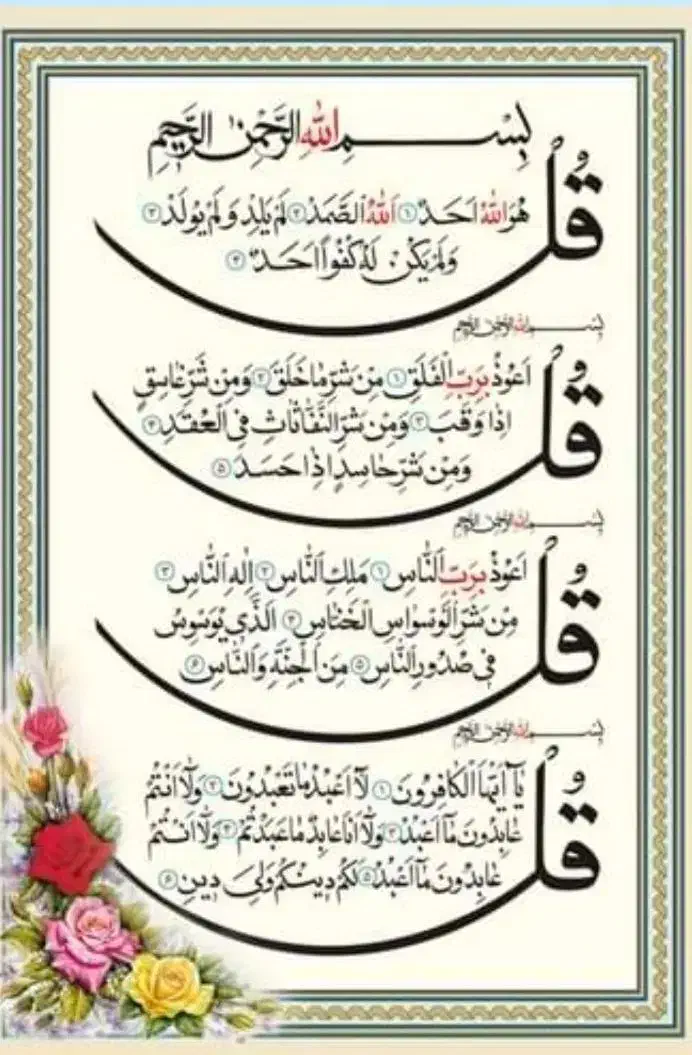 بِسْمِ اللهِ الرَّحْمٰنِ الرَّحِيمِ
قُلْ هُوَ اللهُ اَحَدٌ ۱ اَللهُ الصَّمَدُ ۲ لَمْ يَلِدْ وَلَمْ يُولَدْ ۳
وَلَمْ يَكُنْ لَهُ كُفُوًا اَحَدٌ ۴
بِسْمِ اللهِ الرَّحْمٰنِ الرَّحِيمِ
قُلْ اَعُوذُ بِرَبِّ الْفَلَقِ ۱ مِنْ شَرِّ مَا خَلَقَ ۲ وَمِنْ شَرِّ غَاسِقٍ
اِذَا وَقَبَ ۳ وَمِنْ شَرِّ النَّفَّاثَاتِ فِي الْعُقَدِ ۴
وَمِنْ شَرِّ حَاسِدٍ اِذَا حَسَدَ ۵
بِسْمِ اللهِ الرَّحْمٰنِ الرَّحِيمِ
قُلْ اَعُوذُ بِرَبِّ النَّاسِ ۱ مَلِكِ النَّاسِ ۲ اِلٰهِ النَّاسِ ۳
مِنْ شَرِّ الْوَسْوَاسِ الْخَنَّاسِ ۴ اَلَّذِي يُوَسْوِسُ
فِي صُدُورِ النَّاسِ ۵ مِنَ الْجِنَّةِ وَالنَّاسِ ۶
بِسْمِ اللهِ الرَّحْمٰنِ الرَّحِيمِ
قُلْ يَآ اَيُّهَا الْكَافِرُونَ ۱ لَآ اَعْبُدُ مَا تَعْبُدُونَ ۲ وَلَآ اَنْتُمْ
عَابِدُونَ مَآ اَعْبُدُ ۳ وَلَآ اَنَا عَابِدٌ مَا عَبَدْتُمْ ۴ وَلَآ اَنْتُمْ
عَابِدُونَ مَآ اَعْبُدُ ۵ لَكُمْ دِينُكُمْ وَلِيَ دِينِ ۶